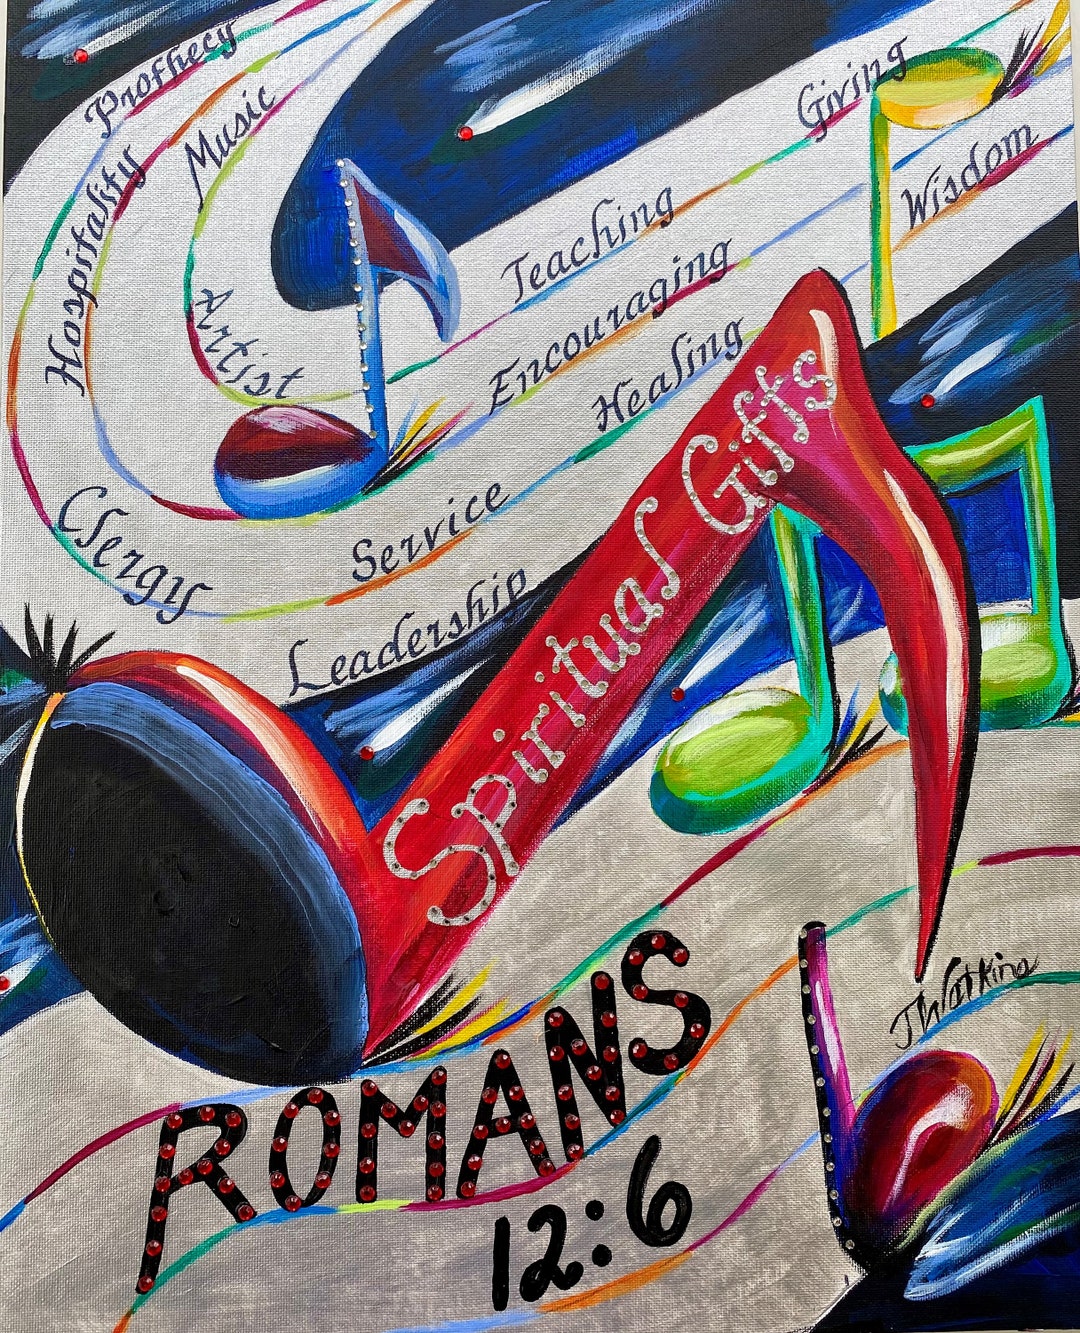 Prophecy
Music
Hospitality
Artist
Clergy
Giving
Wisdom
Teaching
Encouraging
Healing
Service
Leadership
Spiritual Gifts
JWatkins
ROMANS
12:6